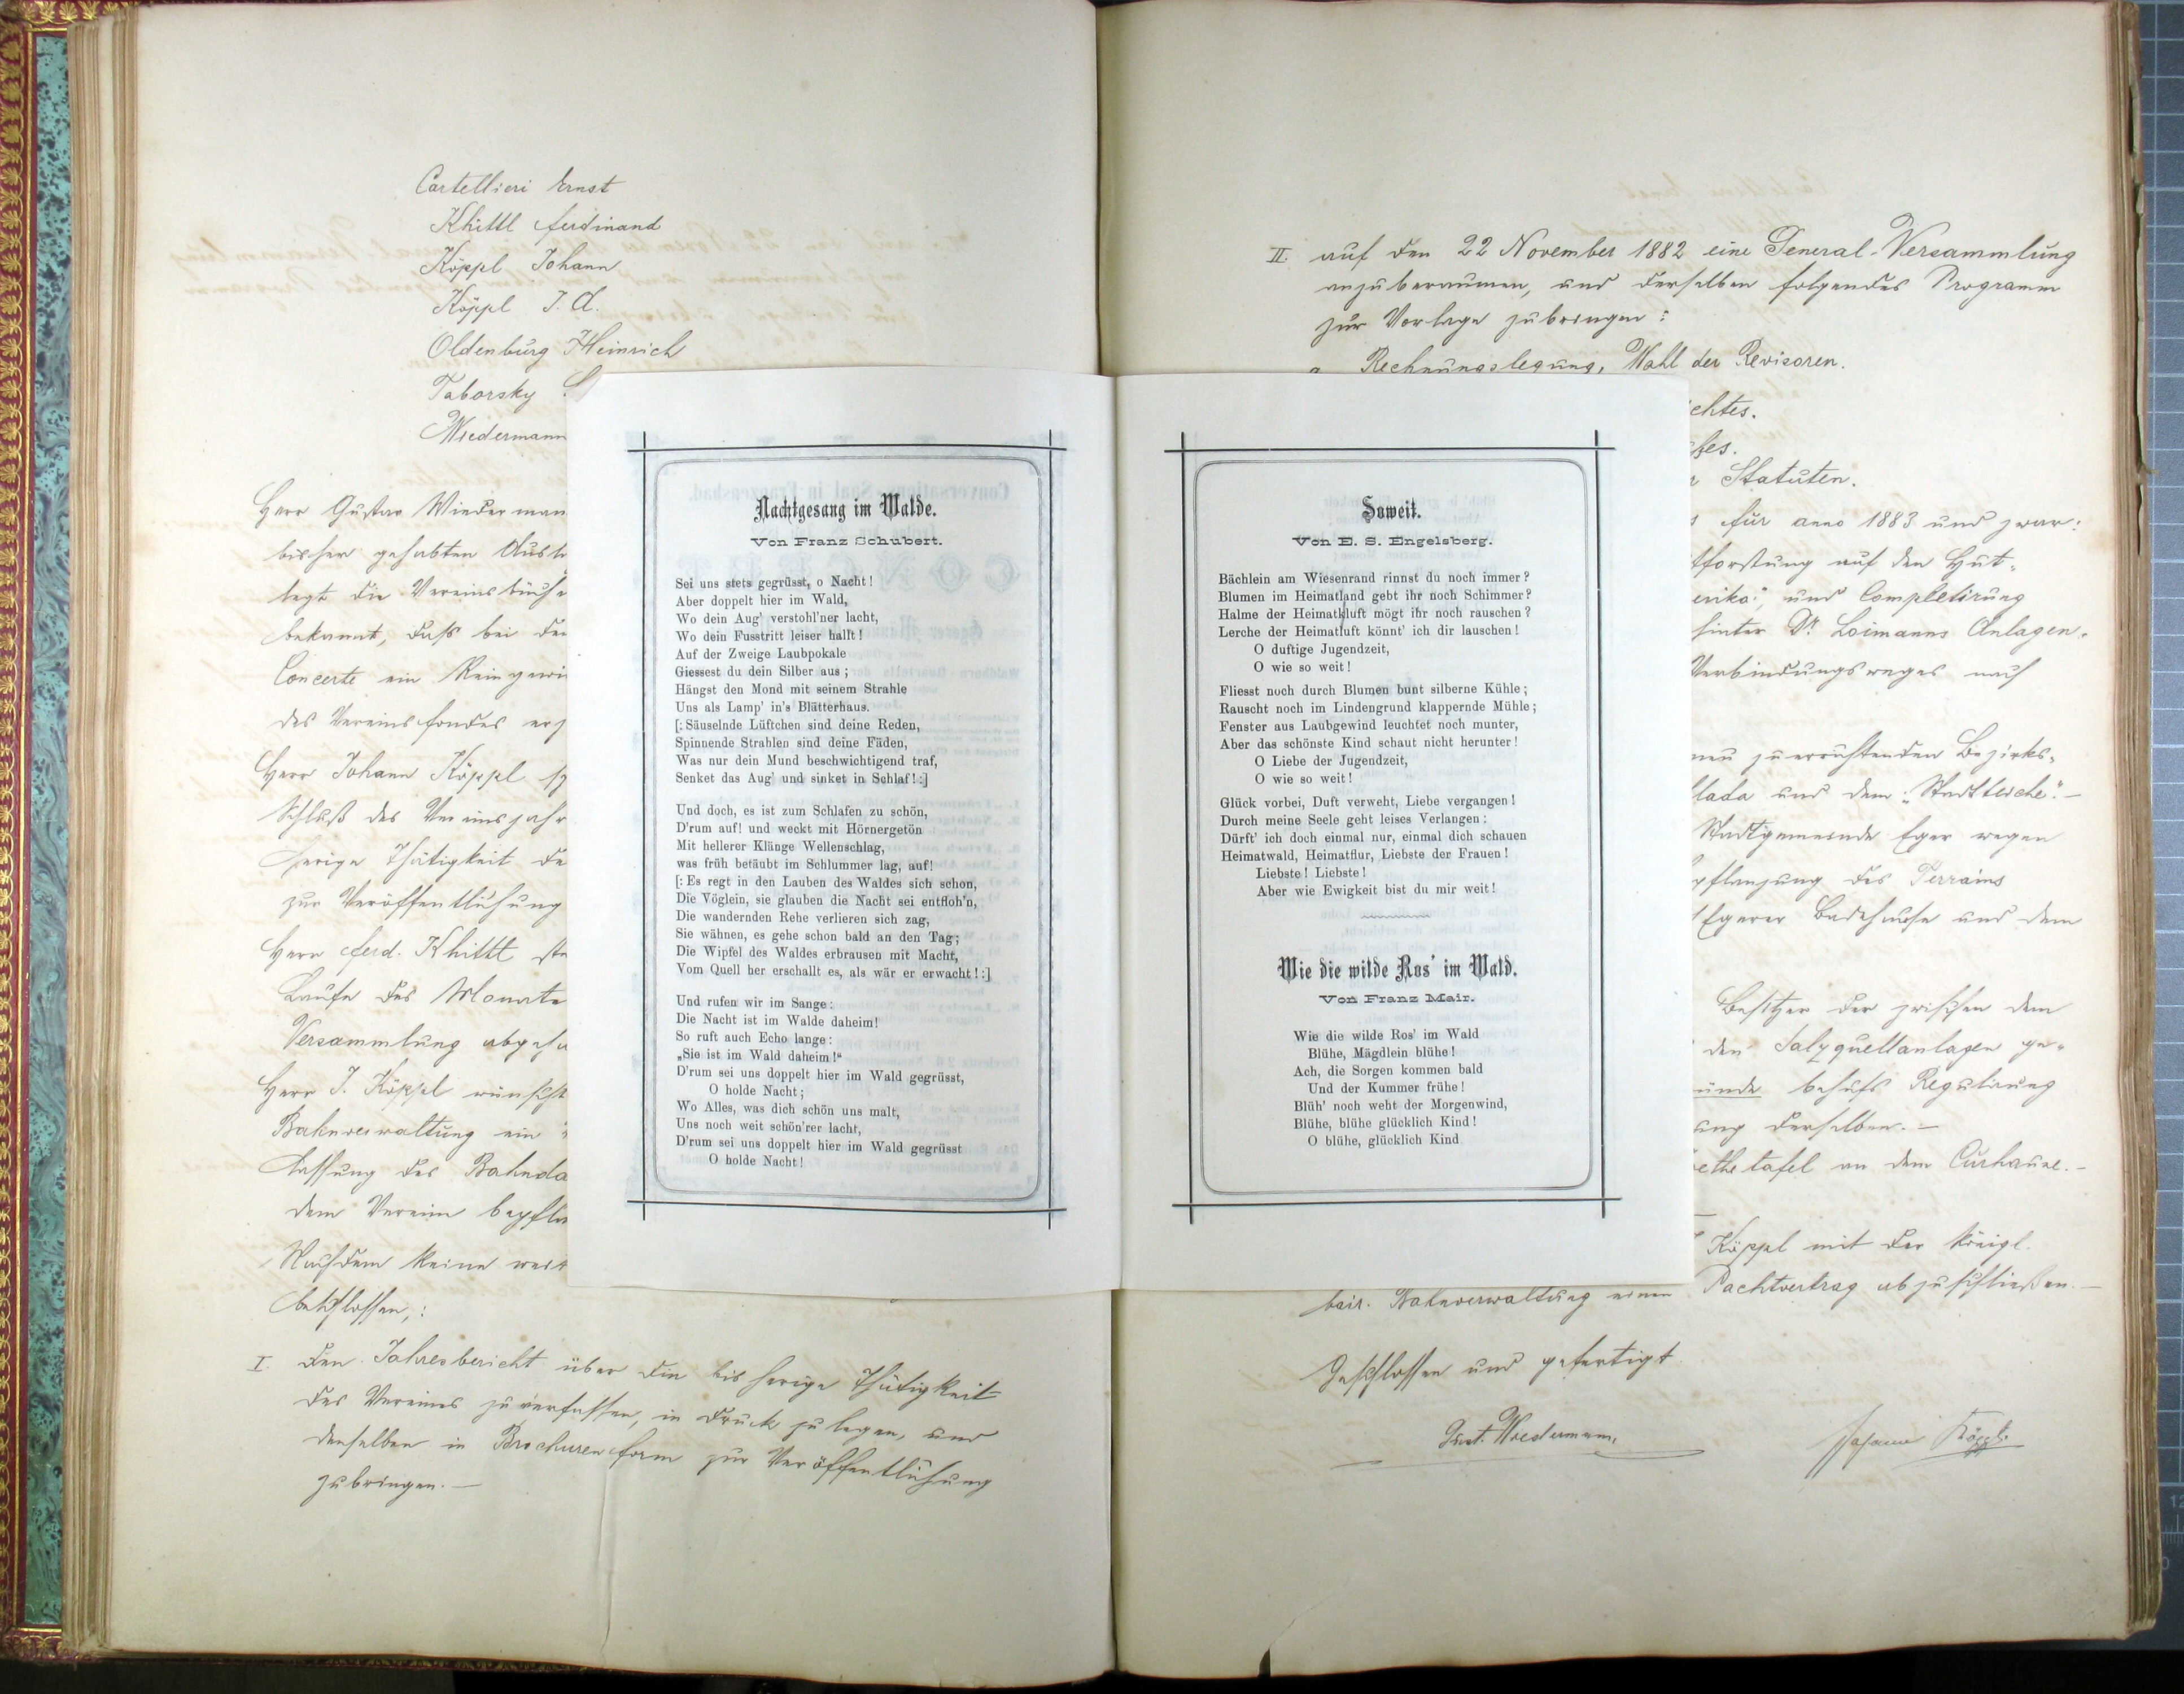 Cartellieri Ernst
Khittl Ferdinand
Köppl Johann
Köppl J. A.
Oldenburg Heinrich
Taborsky
Wiedermann
Herr Gustav Wiederman
bisher gehabten
legt die Vereinsbüche
bekannt, daß bei de
Concerte ein Reingewi
des Vereinsfondes
Herr Johann Köppl
Schluß des Vereinsjahr
herige Thätigkeit de
zur Veröffentlichung
Herr Ferd. Khittl
Laufe des Monats
Versammlung
Herr J. Köppl wünscht
Bahnverwaltung ein
lassung des Bahnda
dem Vereine bepfla
Nachdem keine weit
beschlossen,:
I. den Jahresbericht über die bisherige Thätigkeit
des Vereines zu verfassen, in Druck zu legen, und
denselben in Brochurenform zur Veröffentlichung
zubringen. —
Nachtgesang im Walde.
Von Franz Schubert.
Sei uns stets gegrüsst, o Nacht!
Aber doppelt hier im Wald,
Wo dein Aug' verstohl'ner lacht,
Wo dein Fusstritt leiser hallt!
Auf der Zweige Laubpokale
Giessest du dein Silber aus;
Hängst den Mond mit seinem Strahle
Uns als Lamp' in's Blätterhaus.
[: Säuselnde Lüftchen sind deine Reden,
Spinnende Strahlen sind deine Fäden,
Was nur dein Mund beschwichtigend traf,
Senket das Aug' und sinket in Schlaf! :]
Und doch, es ist zum Schlafen zu schön,
D'rum auf! und weckt mit Hörnergetön
Mit hellerer Klänge Wellenschlag,
was früh betäubt im Schlummer lag, auf!
[: Es regt in den Lauben des Waldes sich schon,
Die Vöglein, sie glauben die Nacht sei entfloh'n,
Die wandernden Rehe verlieren sich zag,
Sie wähnen, es gehe schon bald an den Tag;
Die Wipfel des Waldes erbrausen mit Macht,
Vom Quell her erschallt es, als wär er erwacht! :]
Und rufen wir im Sange:
Die Nacht ist im Walde daheim!
So ruft auch Echo lange:
„Sie ist im Wald daheim!“
D'rum sei uns doppelt hier im Wald gegrüsst,
O holde Nacht;
Wo Alles, was dich schön uns malt,
Uns noch weit schön'rer lacht,
D'rum sei uns doppelt hier im Wald gegrüsst
O holde Nacht!
Soweit.
Von E. S. Engelsberg.
Bächlein am Wiesenrand rinnst du noch immer?
Blumen im Heimatland gebt ihr noch Schimmer?
Halme der Heimatkluft mögt ihr noch rauschen?
Lerche der Heimatluft könnt' ich dir lauschen!
O duftige Jugendzeit,
O wie so weit!
Fliesst noch durch Blumen bunt silberne Kühle;
Rauscht noch im Lindengrund klappernde Mühle;
Fenster aus Laubgewind leuchtet noch munter,
Aber das schönste Kind schaut nicht herunter!
O Liebe der Jugendzeit,
O wie so weit!
Glück vorbei, Duft verweht, Liebe vergangen!
Durch meine Seele geht leises Verlangen:
Dürft' ich doch einmal nur, einmal dich schauen
Heimatwald, Heimatflur, Liebste der Frauen!
Liebste! Liebste!
Aber wie Ewigkeit bist du mir weit!
Wie die wilde Ros' im Wald.
Von Franz Mair.
Wie die wilde Ros' im Wald
Blühe, Mägdlein blühe!
Ach, die Sorgen kommen bald
Und der Kummer frühe!
Blüh' noch weht der Morgenwind,
Blühe, blühe glücklich Kind!
O blühe, glücklich Kind
II. auf den 22 November 1882 eine General-Versammlung
anzuberaumen, und derselben folgendes Programm
zur Vorlage zubringen:
a Rechnungslegung, Wahl der Revisoren.
chtes.
Statuten.
für anno 1883 und zwar:
fforstung auf den Hut-
und Completirung
hinter Dr. Loimanns Anlagen.
Verbindungsweges nach
neu zu errichtenden Bezirks-
lada und dem „Stadtteiche“. —
Stadtgemeinde Eger wegen
pflanzung des Terrains
Egerer Badehause und dem
Besitzer der zwischen dem
den Salzquellanlagen ge-
ünde behufs Regulirung
ung derselben. —
ethetafel an dem Curhause. —
Köppl mit der königl.
bair. Bahnverwaltung einen Pachtvertrag abzuschließen. —
Geschlossen und gefertigt
Gust. Wiedermann
Johann Köppl